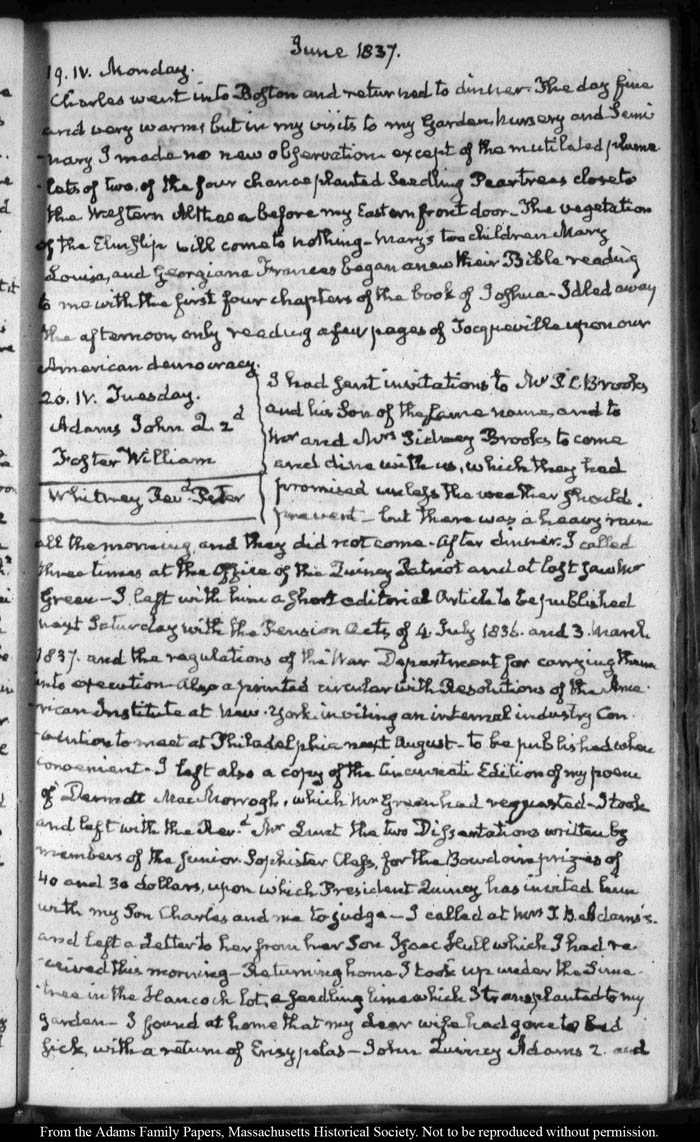 June 1837.
19. IV. Monday.
Charles went into Boston and returned to dinner. The day fine
and very warm; but in my visits to my Garden, nursery and Semi
-nary I made no new observation except of the mutilated plume
-lets of two, of the four chance planted Seedling Peartrees close to
the Western Althaea before my Eastern front door. The vegetation
of the Elm slip will come to nothing. Mary's two children Mary
Louisa, and Georgiana Frances began anew their Bible reading
to me with the first four chapters of the book of Joshua. Idled away
the afternoon, only reading a few pages of Tocqueville upon our
American democracy.
20. IV. Tuesday.
Adams John Q. 2d
Foster William
Whitney Revd. Peter
I had sent invitations to Mr P. C Brooks
and his Son of the same name, and to
Mr and Mrs Sidney Brooks to come
and dine with us, which they had
promised unless the weather should
prevent – but there was a heavy rain
all the morning, and they did not come. After dinner I called
three times at the Office of the Quincy Patriot and at last saw Mr
Green – I left with him a short editorial Article to be published
next Saturday with the Pension Acts, of 4. July 1836. and 3. March
1837. and the regulations of the War Department for carrying them
into execution. Also a printed circular with Resolutions of the Ame-
-rican Institute at New-York inviting an internal industry Con-
-vention to meet at Philadelphia next August – to be published when
convenient. I left also a copy of the Cincinnati Edition of my poem
of Dermot MacMorrogh, which Mr Green had requested – I took
and left with the Revd. Mr Lunt the two Dissertations written by
members of the Junior Sophister Class, for the Bowdoin prizes of
40 and 30 dollars, upon which President Quincy has invited him
with my Son Charles and me to judge – I called at Mrs T. B. Adams's.
and left a Letter to her from her Son Isaac Hull which I had re-
-ceived this morning – Returning home I took up under the Lime-
-tree in the Hancock lot, a seedling lime which I transplanted to my
garden – I found at home that my dear wife had gone to bed
sick, with a return of Erisypelas – John Quincy Adams 2. and
From the Adams Family Papers, Massachusetts Historical Society. Not to be reproduced without permission.